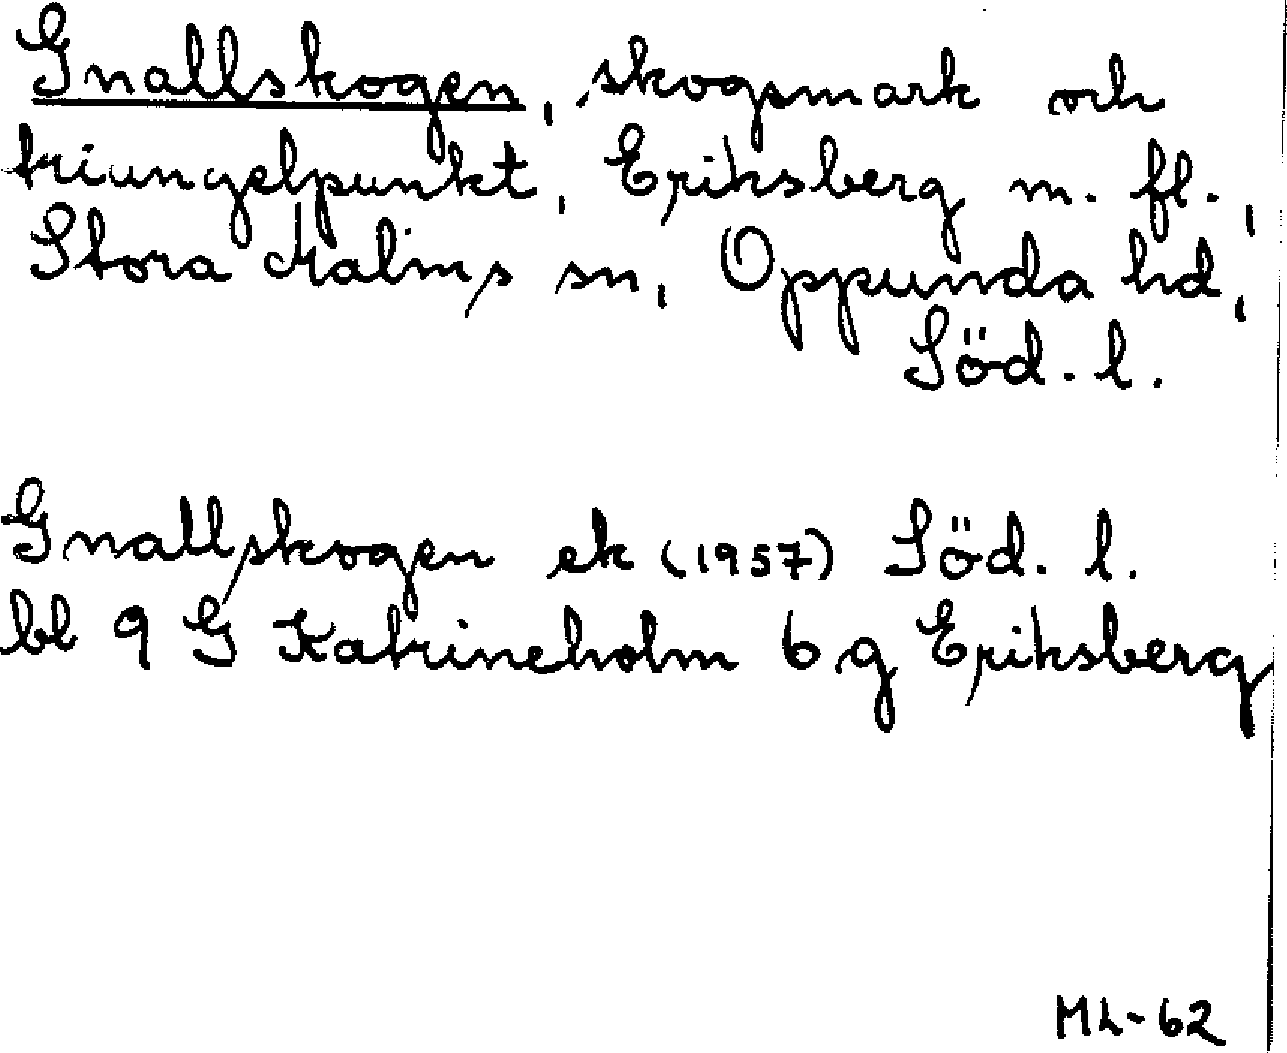 Gnallskogen, skogsmark och
triangelpunkt, Eriksberg m. fl.,
Stora Malms sn, Oppunda hd,
Söd. l.
Gnallskogen ek (1957) Söd. l.
bl 9 G Katrineholm 6 g Eriksberg
ML-62